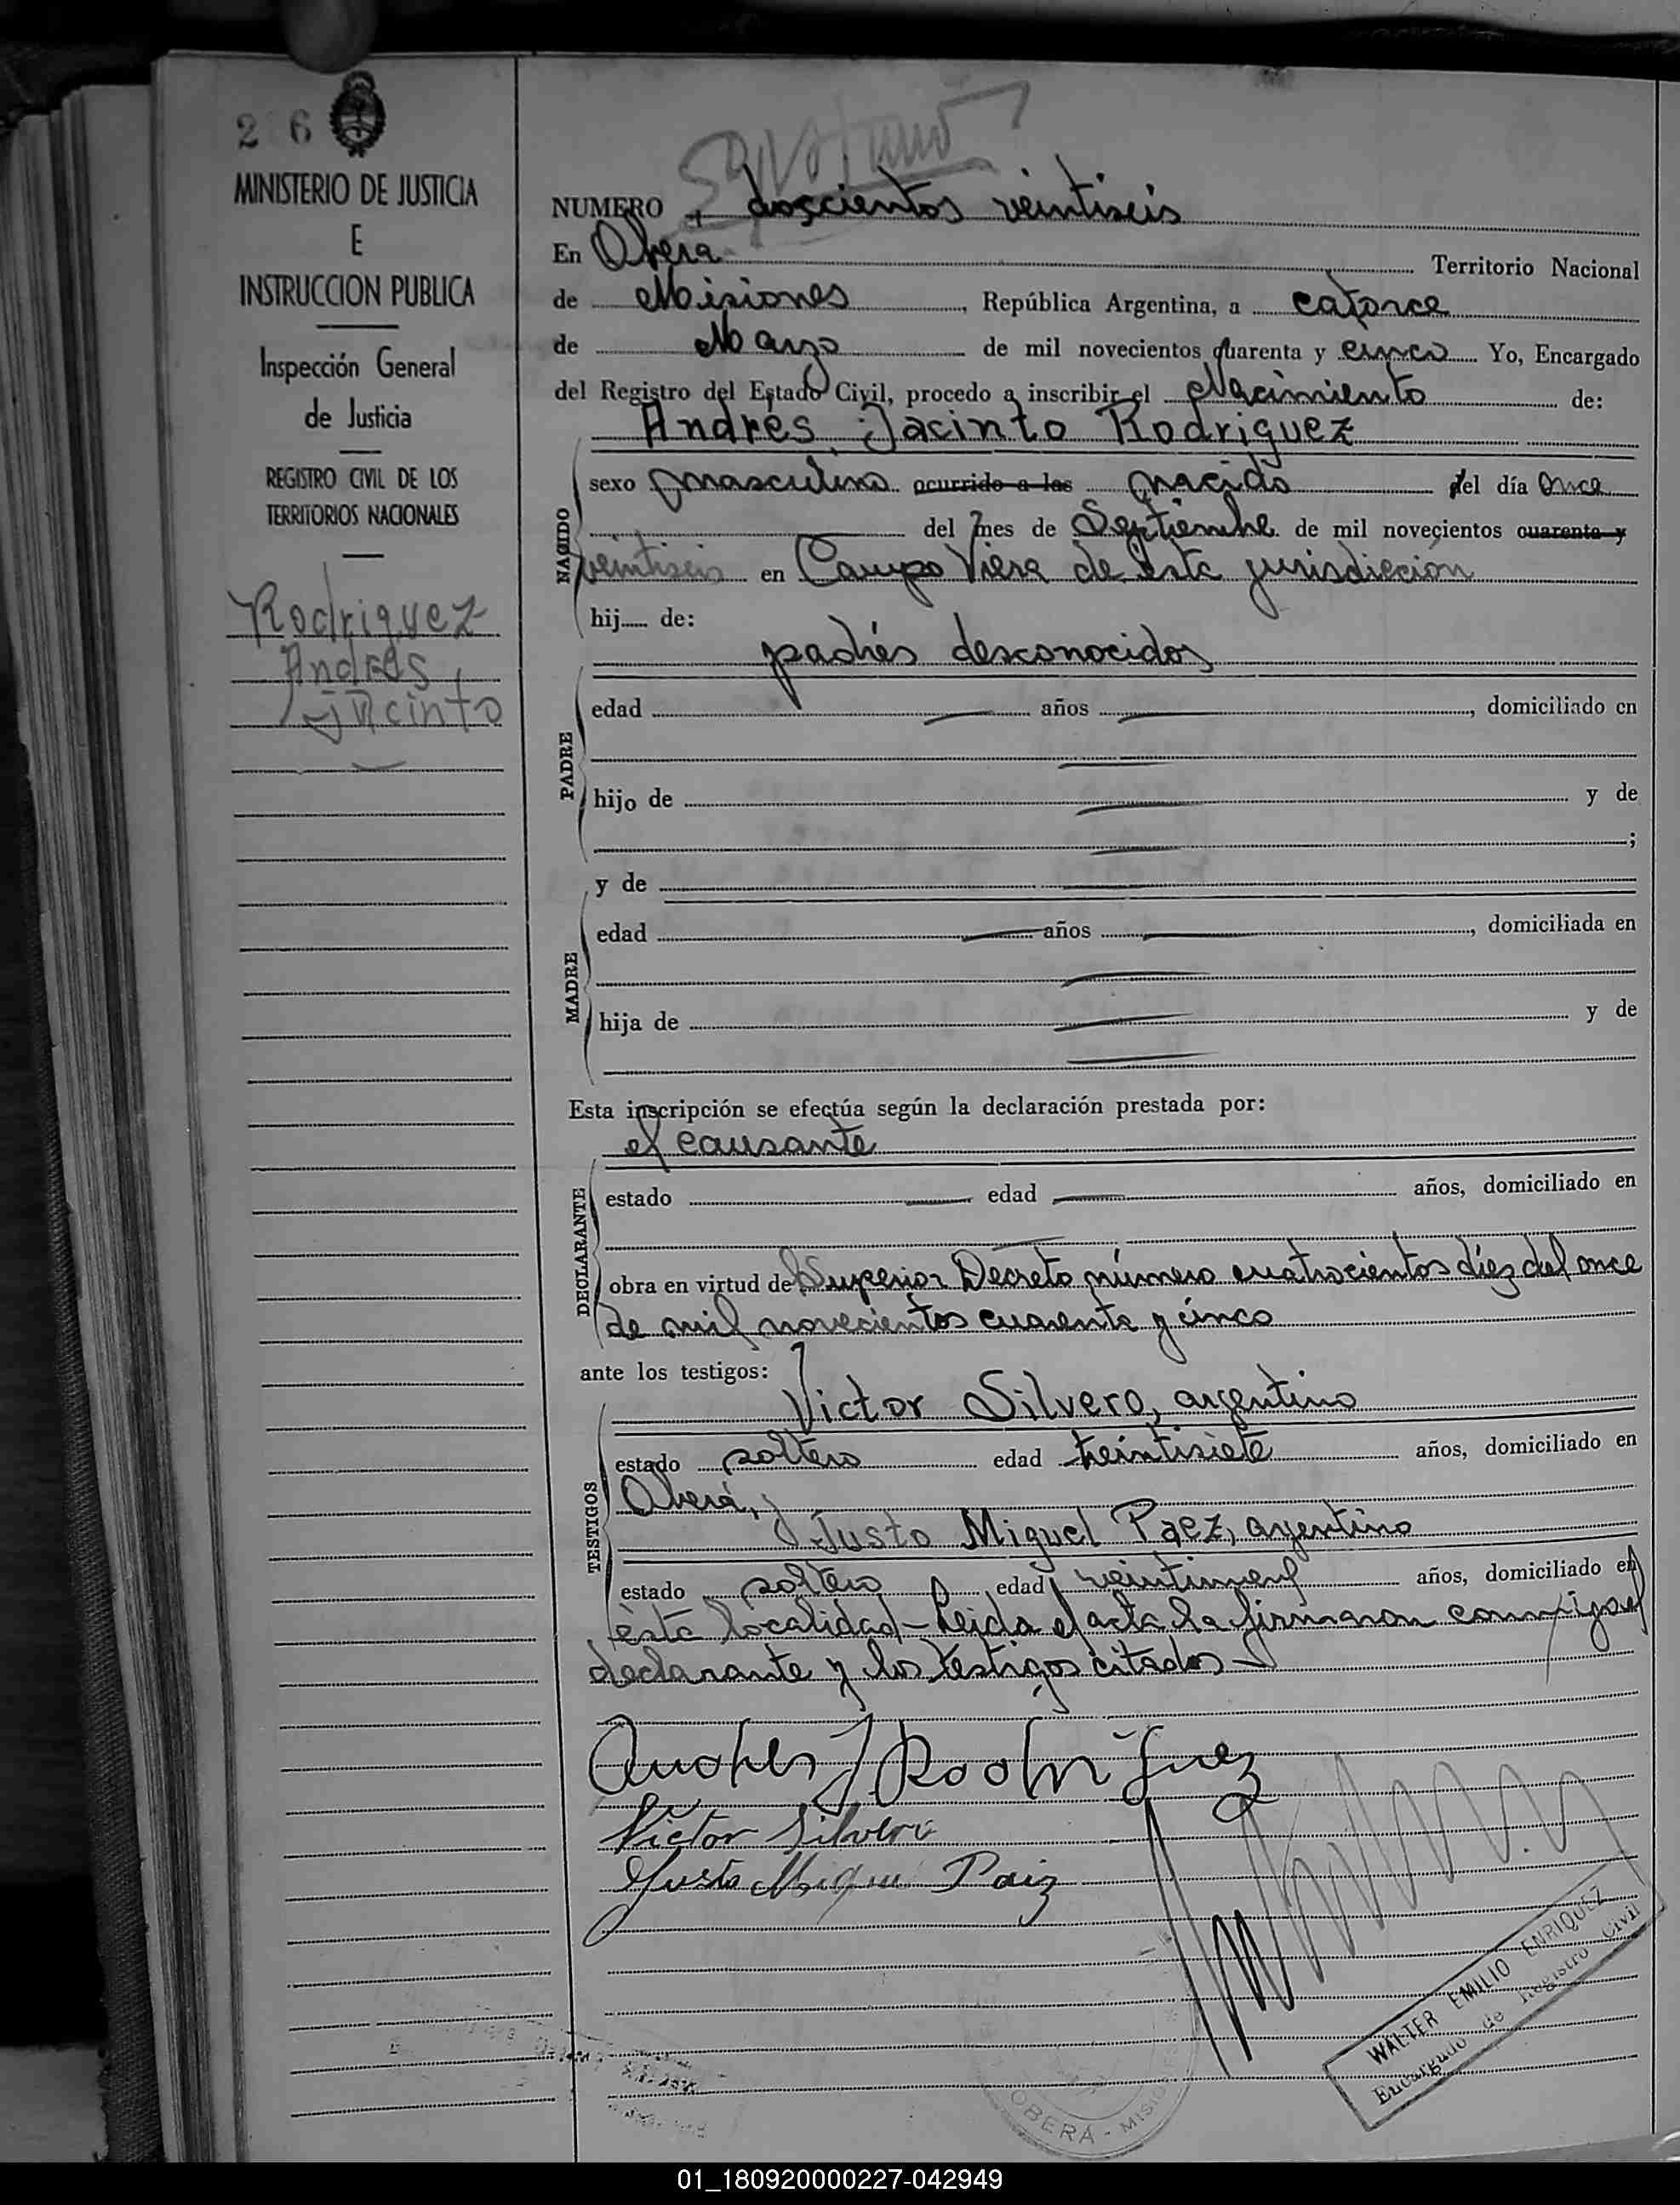 2 6
MINISTERIO DE JUSTICIA
E
INSTRUCCION PUBLICA
Inspección General
de Justicia
REGISTRO CIVIL DE LOS
TERRITORIOS NACIONALES
Rodriguez
Andres
Jacinto
NUMERO doscientos veintiseis
En Oberá Territorio Nacional
de Misiones, República Argentina, a catorce
de Marzo de mil novecientos cuarenta y cinco Yo, Encargado
del Registro del Estado Civil, procedo a inscribir el Nacimiento de:
Andrés Jacinto Rodriguez
NACIDO
sexo masculino ocurrido a las nacido del día once
del mes de Septiembre de mil novecientos cuarenta y
veintiseis en Campo Viera de esta jurisdicción
hij de:
padres desconocidos
PADRE
edad años , domiciliado en
hijo de y de
;
y de
MADRE
edad años , domiciliada en
hija de y de
Esta inscripción se efectúa según la declaración prestada por:
el causante
DECLARANTE
estado edad años, domiciliado en
obra en virtud de Superior Decreto número cuatrocientos diez del once
de mil novecientos cuarenta y cinco
ante los testigos:
Victor Silvero, argentino
TESTIGOS
estado soltero edad treintisiete años, domiciliado en
Oberá, y
Justo Miguel Paez, argentino
estado soltero edad años, domiciliado en
ésta localidad - Leida el acta la firmaron conmigo el
declarante y los testigos citados -
Andres J Rodriguez
Victor Silvero
Justo Miguel Paiz
WALTER EMILIO ENRIQUEZ
Encargado de Registro Civil
OBERÁ - MISIONES
01_180920000227-042949